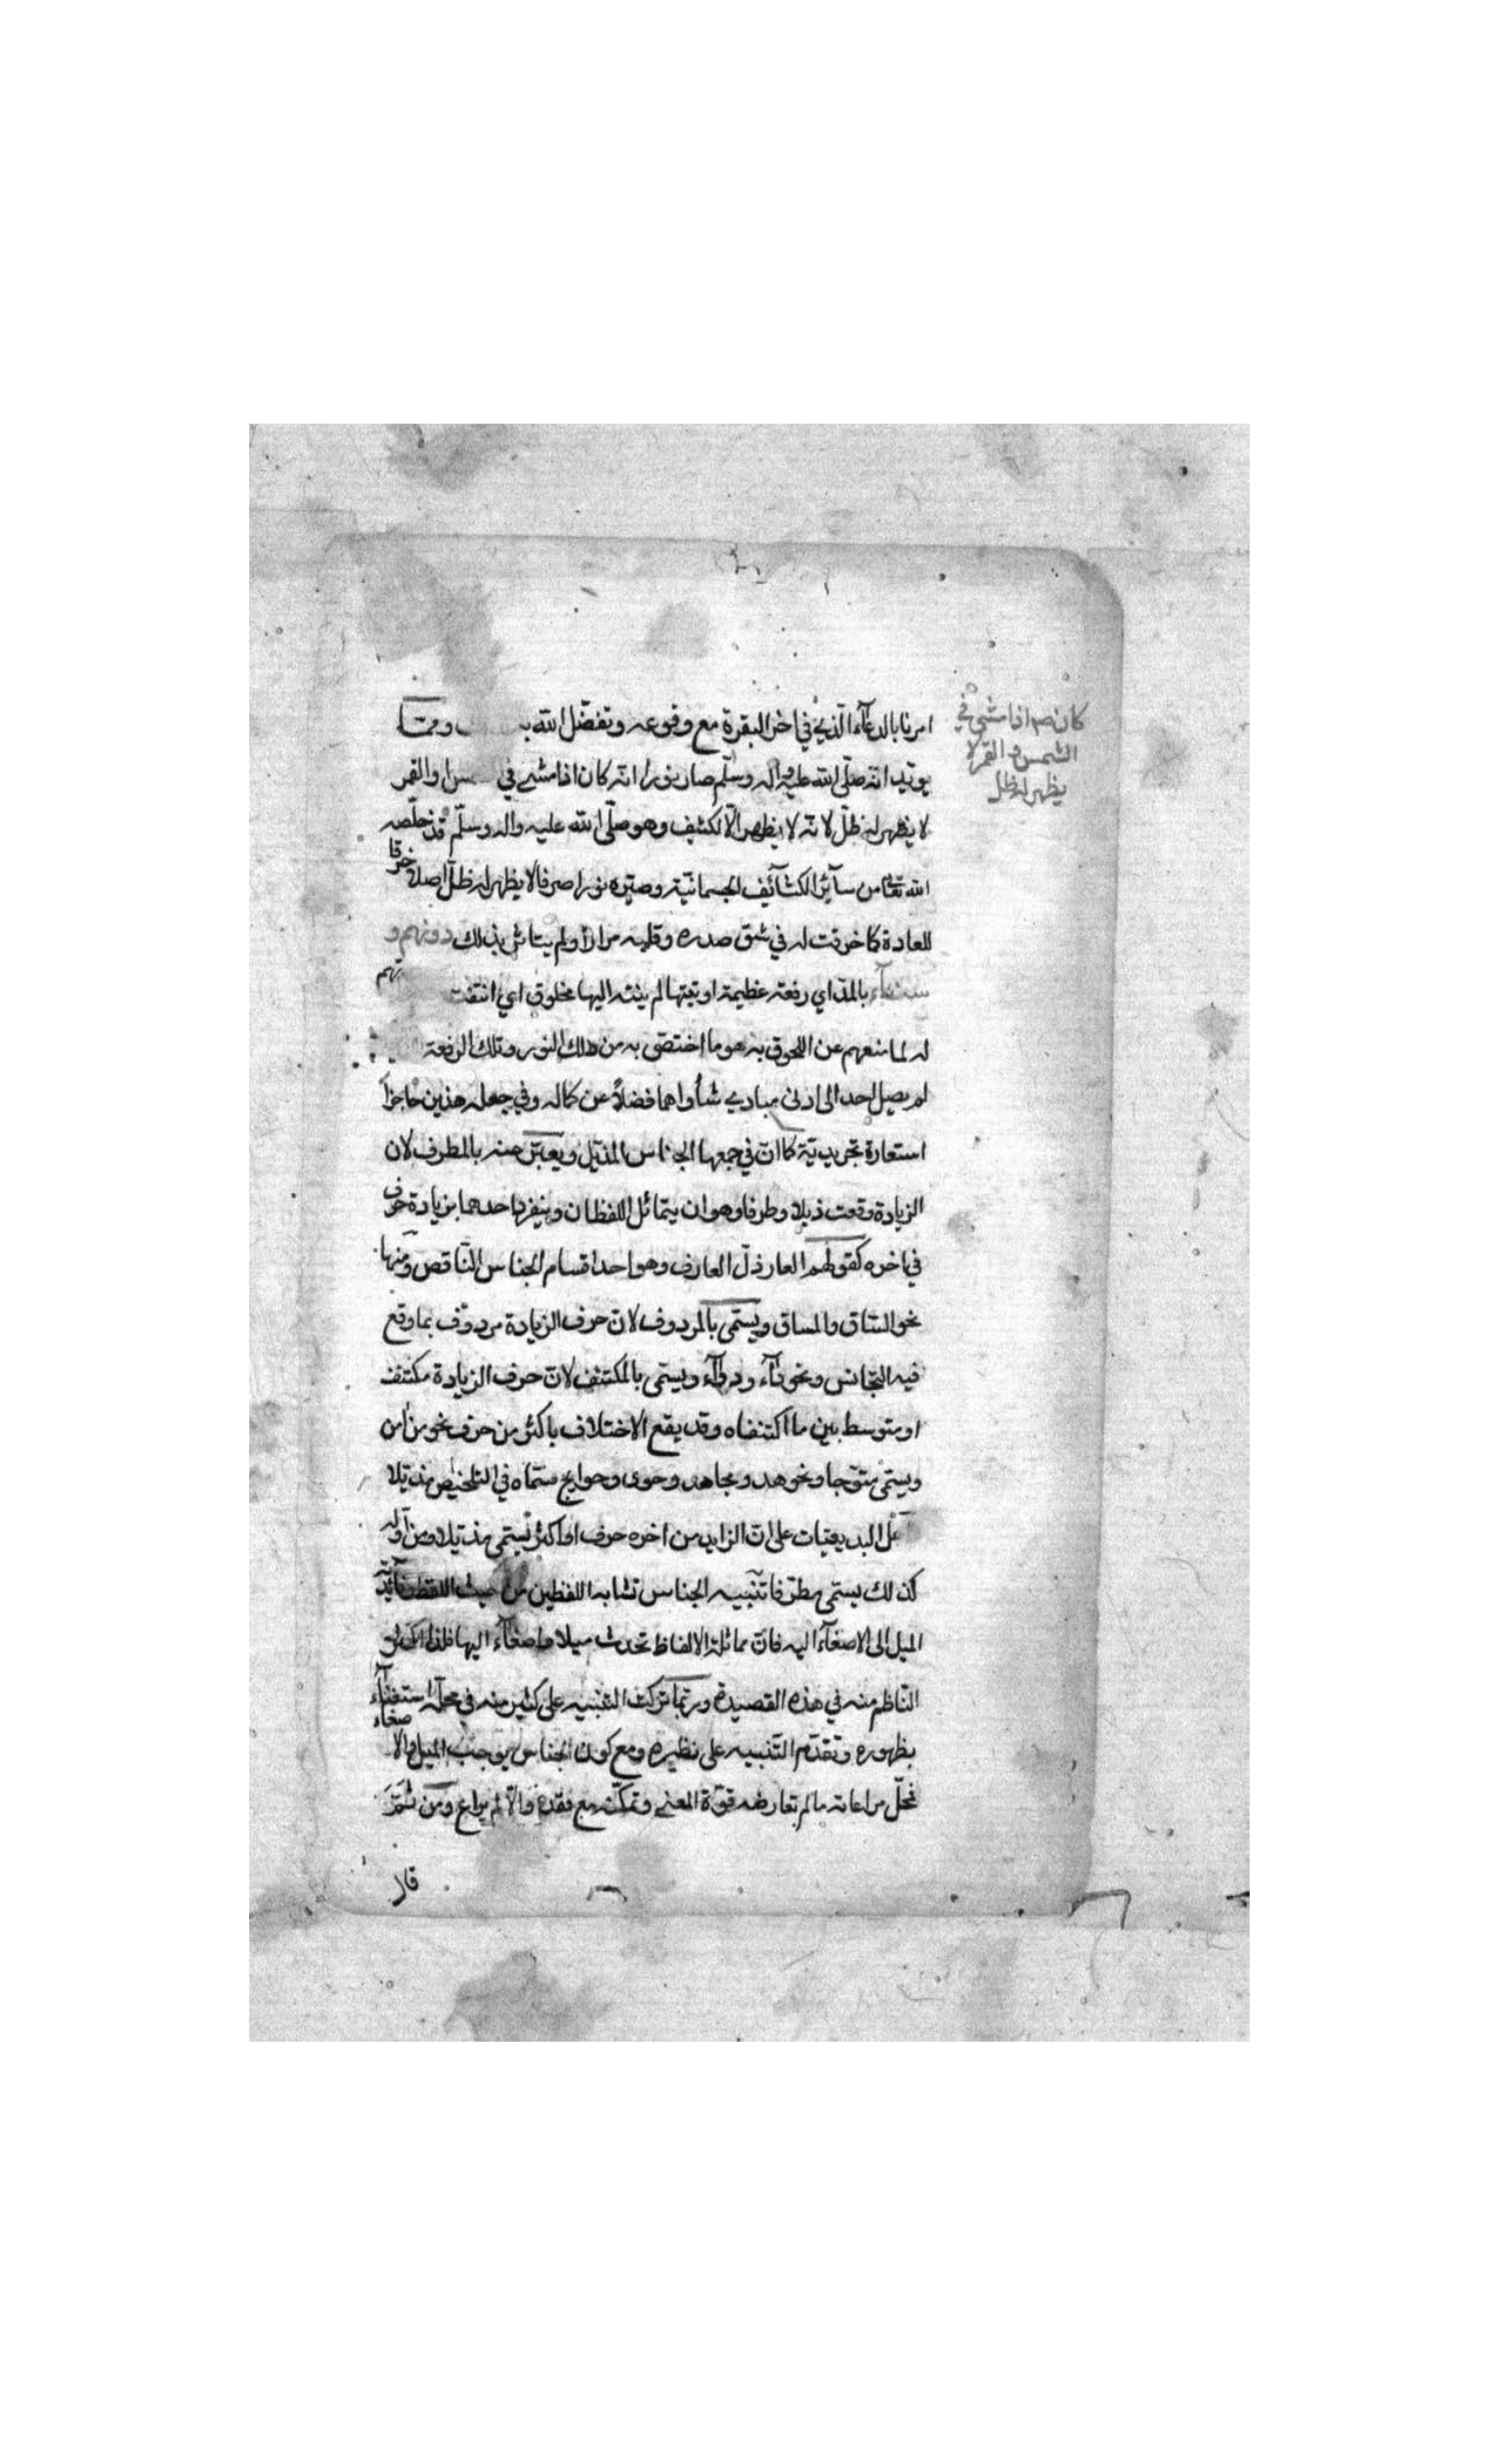 كان صم اذا مشى في
الشمس والقمر لا
يظهر له ظل
امرنا بالدعآء الّذي في اخر البقرة مع وقوعه وتفضّل الله به وممّا
يويد انّه صلّى الله عليه واله وسلّم صار نورا انّه كان اذا مشى في او القمر
لا يظهر له ظلّ لانّه لا يظهر الّا لكثيف وهو صلّى الله عليه واله وسلّم قد خلّصه
الله تعالى من سآئر الكثآئف الجسمانيّة وصيّره نورا صرفا لا يظهر له ظلّ اصلا خرقا
للعادة كما خرقت له في شق صدره وقلبه مرارا ولم يتاثّر بذلك دونهم و
سنآء بالمدّ اي رفعة عظيمة اوتيتها لم ينته اليها مخلوق اي انتفت
له لما منعهم عن اللحوق به هو ما اختصّ به من ذلك النور وتلك الرفعة
لم يصل احد الى ادنى مبادي شأواهما فضلاً عن كماله وفي جعله هذين حاجزا
استعارة تجريديّة كما انّ في جمعها الجناس المذيّل ويعبّر عنه بالمطرف لان
الزيادة وقعت ذيلا وطرفا وهو ان يتماثل اللفظان وينفرد احدهما بزيادة حرف
في اخره كقولهم العار ذلّ العارف وهو احد اقسام الجناس النّاقص ومنها
نحو السّاق والمساق ويسمّى بالمردوف لانّ حرف الزيادة مردوف بما وقع
فيه التّجانس ونحو دآء ودوآء ويسمّى بالمكتنف لانّ حرف الزيادة مكتنف
او متوسط بين ما اكتنفاه وقد يقع الاختلاف باكثر من حرف نحو من
ويسمّى متوّجا ونحو هد ومجاهد وحوى وحوايج مسمّاه في التلخيص مذيّلا
البديعيات على انّ الزايد من اخره حرف او اكثر يسمّى مذيّلا ومن اوّله
كذلك يسمّى مطرّفا تنبيه الجناس تشابه اللفظين من حيث اللفظ
الميل الى الاصغآء اليه فانّ مماثلة الالفاظ تحدث ميلا واصغآء اليها فلذا اكثر
النّاظم منه في هذه القصيدة وربّما تركت التنبيه على كثير منه في محلّه استغنآء
بظهوره وتقدّم التّنبيه على نظيره ومع كون الجناس يوجب الميل والاصغآء
فحلّ مراعاته ما لم تعارضه قوّة المعنى وتمكّنه مع فقده والّا لم يراع ومن ثمّ
قال